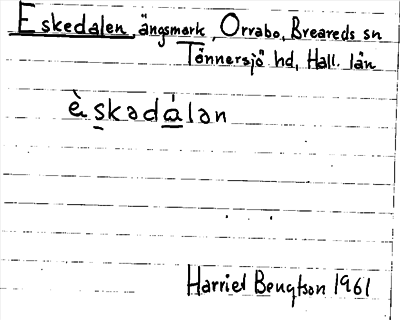 Eskedalen, ängsmark, Orrabo, Breareds sn
Tönnersjö hd, Hall. län
ès̱kədá̱lən
Harriet Bengtson 1961